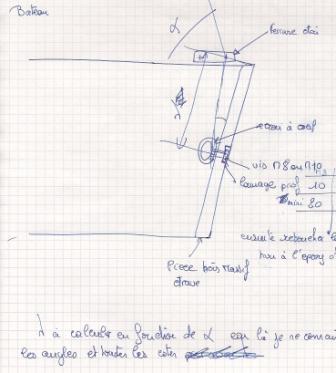 Bateau
α
ferrure étai
λ
écrou à œil
vis M8 ou M10
lamage prof 10
mini 80
ensuite reboucher le
trou à l'époxy
Pièce bois massif
étrave
λ à calculer en fonction de α car là je ne connais
les angles et toutes les côtes